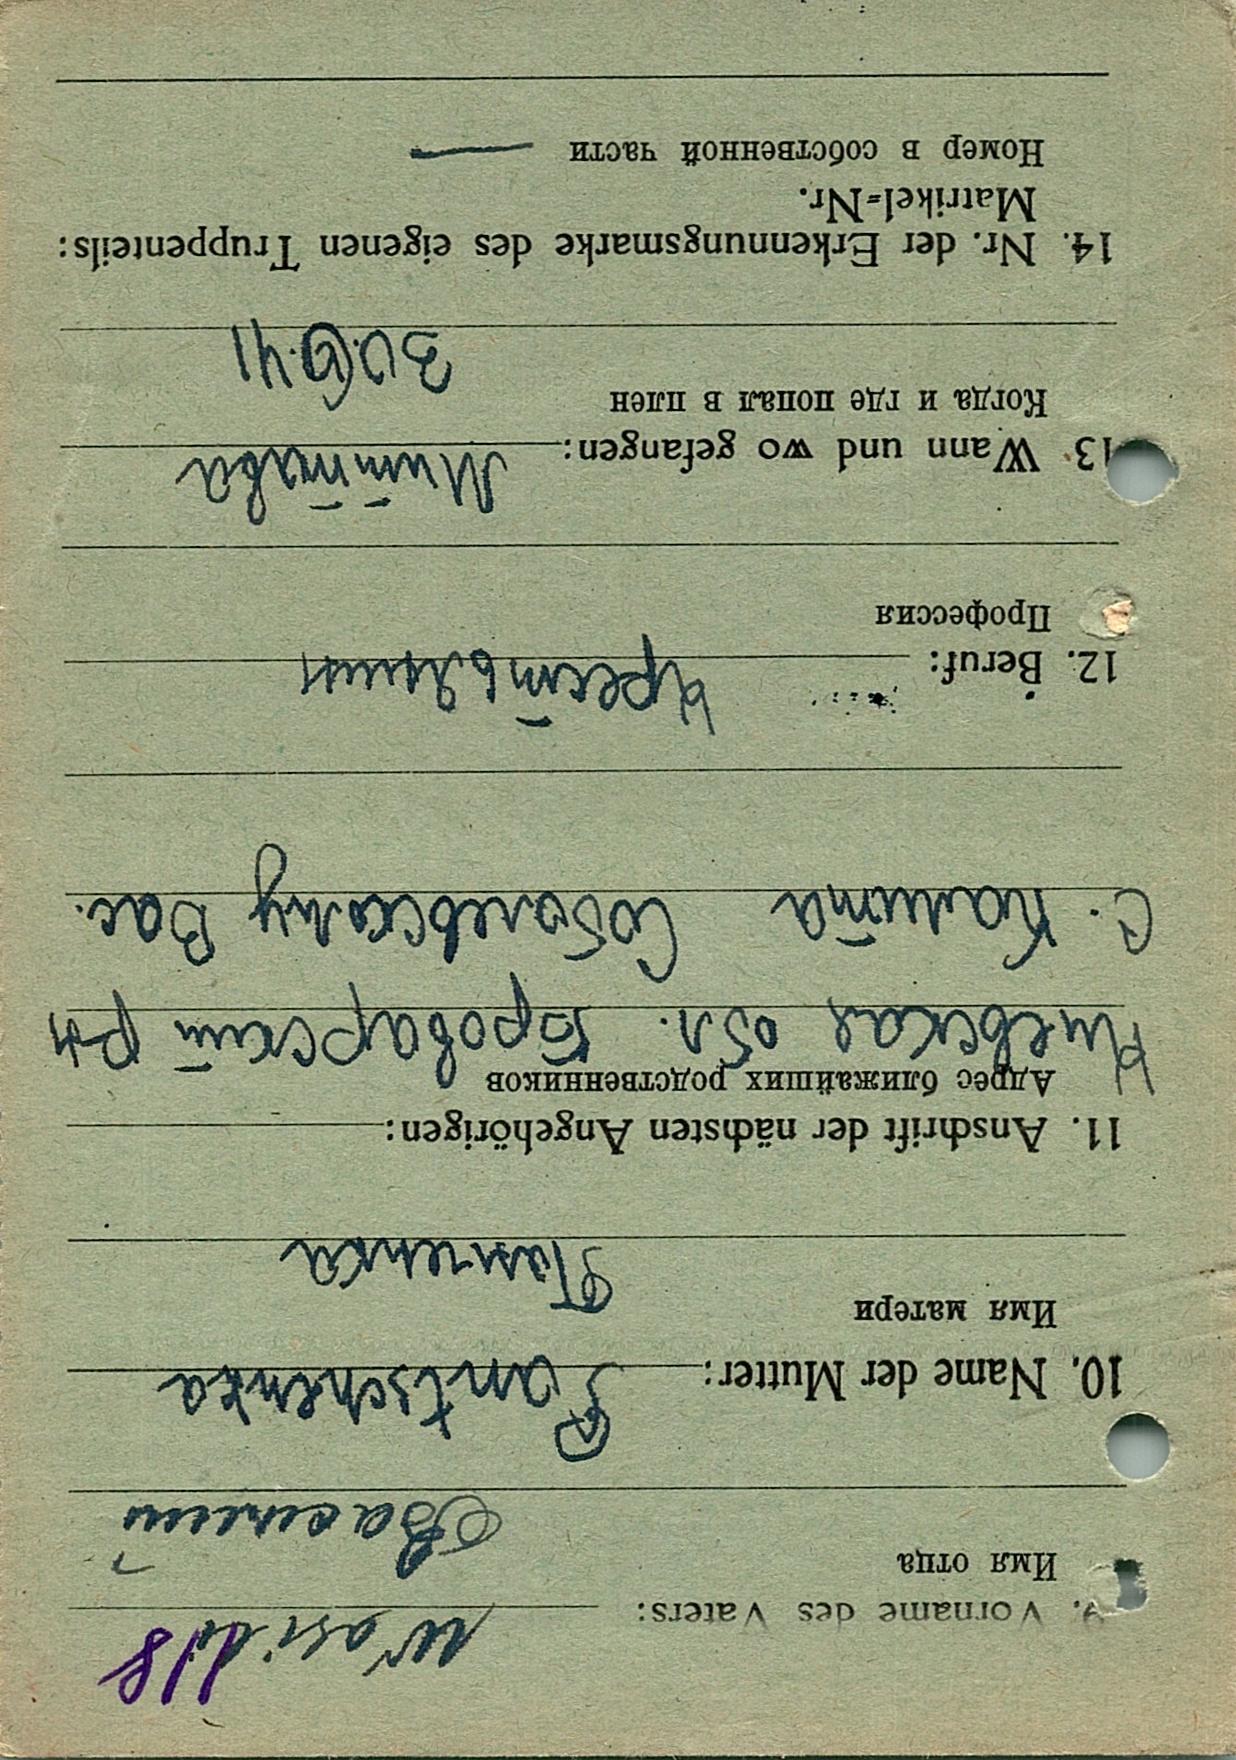 118
9. Vorname des Vaters: Wasili
Имя отца
Василий
10. Name der Mutter: Pantschenka
Имя матери
Панченка
11. Anschrift der nächsten Angehörigen:
Адрес ближайших родственников
Киевская обл. Броварский р-н
с. Калита Соболевскому Вас.
12. Beruf: Крестьянин
Профессия
13. Wann und wo gefangen: Мит́ава
Когда и где попал в плен
30.6.41
14. Nr. der Erkennungsmarke des eigenen Truppenteils:
Matrikel=Nr.
Номер в собственной части —